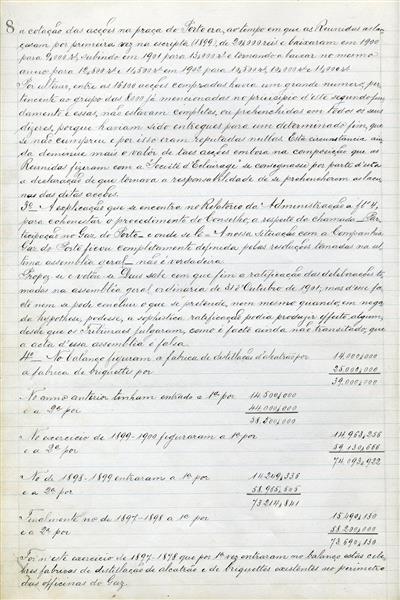 8
a cotação das acções na praça do Porto era, ao tempo em que as Reunidas as lan-
çaram por primeira vez na escripta (1899) de 24000 reis e baixaram em 1900
para 9,000 rs, subindo em 1901 para 13,000 rs e tornando a baixar no mesmo
anno para 12,800 rs e 11,500 rs em 1902 para 14,800 rs, 12,000 rs e 14,000 rs.
Por ultimo, entre as 16100 acções compradas havia um grande numero, per-
tencente ao grupo das 8.000 já mencionadas no principio d'este segundo fun-
damento e essas, não estavam completas, ou prehenchidas em todos os seus
dizeres, porque haviam sido entregues para um determinado fim, que
se não cumpriu e por isso eram reputadas nullas. Esta circumstancia ain-
da diminue mais o valor de taes acções embora na composição que as
Reunidas fizeram com a Société d'Eclairage se consignasse por parte d'esta
a declaração de que tomava a responsabilidade de se prehencherem as lacu-
nas das ditas acções.
3º A explicação que se encontra no Relatorio da Administração a fl 4,
para cohonestar o procedimento do Conselho, a respeito da chamada Par-
ticipação no Gaz do Porto e onde se lê A nossa situação com a Companhia
Gaz do Porto ficou completamente definida pelas resoluções tomadas na ul-
tima assemblea geral não é verdadeira.
Propoz-se e votou-se Deus sabe com que fim a ratificação das deliberações to-
madas na assemblea geral ordinaria de 31 d'Outubro de 1901, mas d'esse fa-
do nem se pode concluir o que se pretende, nem mesmo quando, em nega-
da hypothese, podesse, a sophistica ratificação podia produzir effeito algum,
desde que os tribunaes julgaram, como é facto ainda não transitado, que
a acta d'essa assemblea é falsa.
4º No balanço figuram a fabrica de distillação d'alcatrão por 14.000,000
a fabrica de briquettes por 25.000,000
39.000,000
No anno anterior tinham entrado a 1ª por 14.500,000
e a 2ª por 44.000,000
58.500,000
No exercicio de 1899-1900 figuraram a 1ª por 14.963,256
e a 2ª por 59.130,666
74.093,922
No de 1898-1899 entraram a 1ª por 14.249,336
e a 2ª por 58.965,505
73.214,841
Finalmente no de 1897-1898 a 1ª por 15.490,130
e a 2ª por 58.200,000
73.690,130
Foi n'este exercicio de 1897-1898 que por 1ª vez entraram no balanço estas cele-
bres fabricas de distillação de alcatrão e de briquettes existentes no perimetro
das officinas do Gaz.